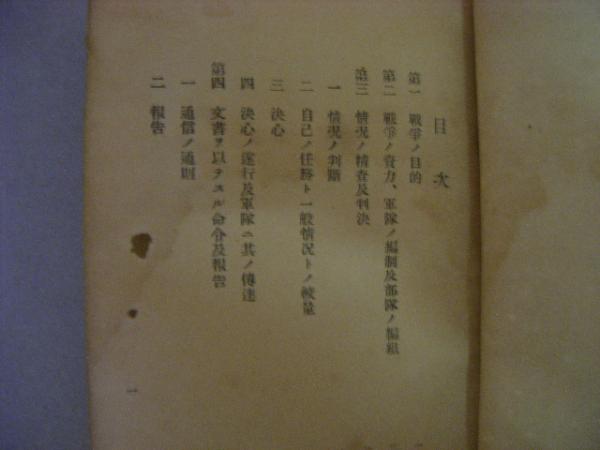 目次
第一 戰爭ノ目的
第二 戰爭ノ資力、軍隊ノ編制及部隊ノ編組
第三 情況ノ精査及判決
一 情況ノ判斷
二 自己ノ任務ト一般情況トノ較量
三 決心
四 決心ノ遂行及軍隊ニ其ノ傳達
第四 文書ヲ以テスル命令及報告
一 通信ノ通則
二 報告
一